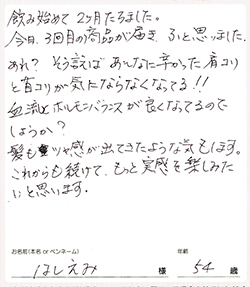 飲み始めて2ヶ月たちました。
今日、3回目の商品が届き、ふと思いました。
あれ？そう言えばあんなに辛かった肩コリ
と首コリが気にならなくなってる!!
血流とホルモンバランスが良くなってるので
しょうか？
髪もツヤ感が出てきたような気もします。
これからも続けて、もっと実感を楽しみた
いと思います。
お名前(本名 or ペンネーム)
年齢
はしえみ 様 54 歳